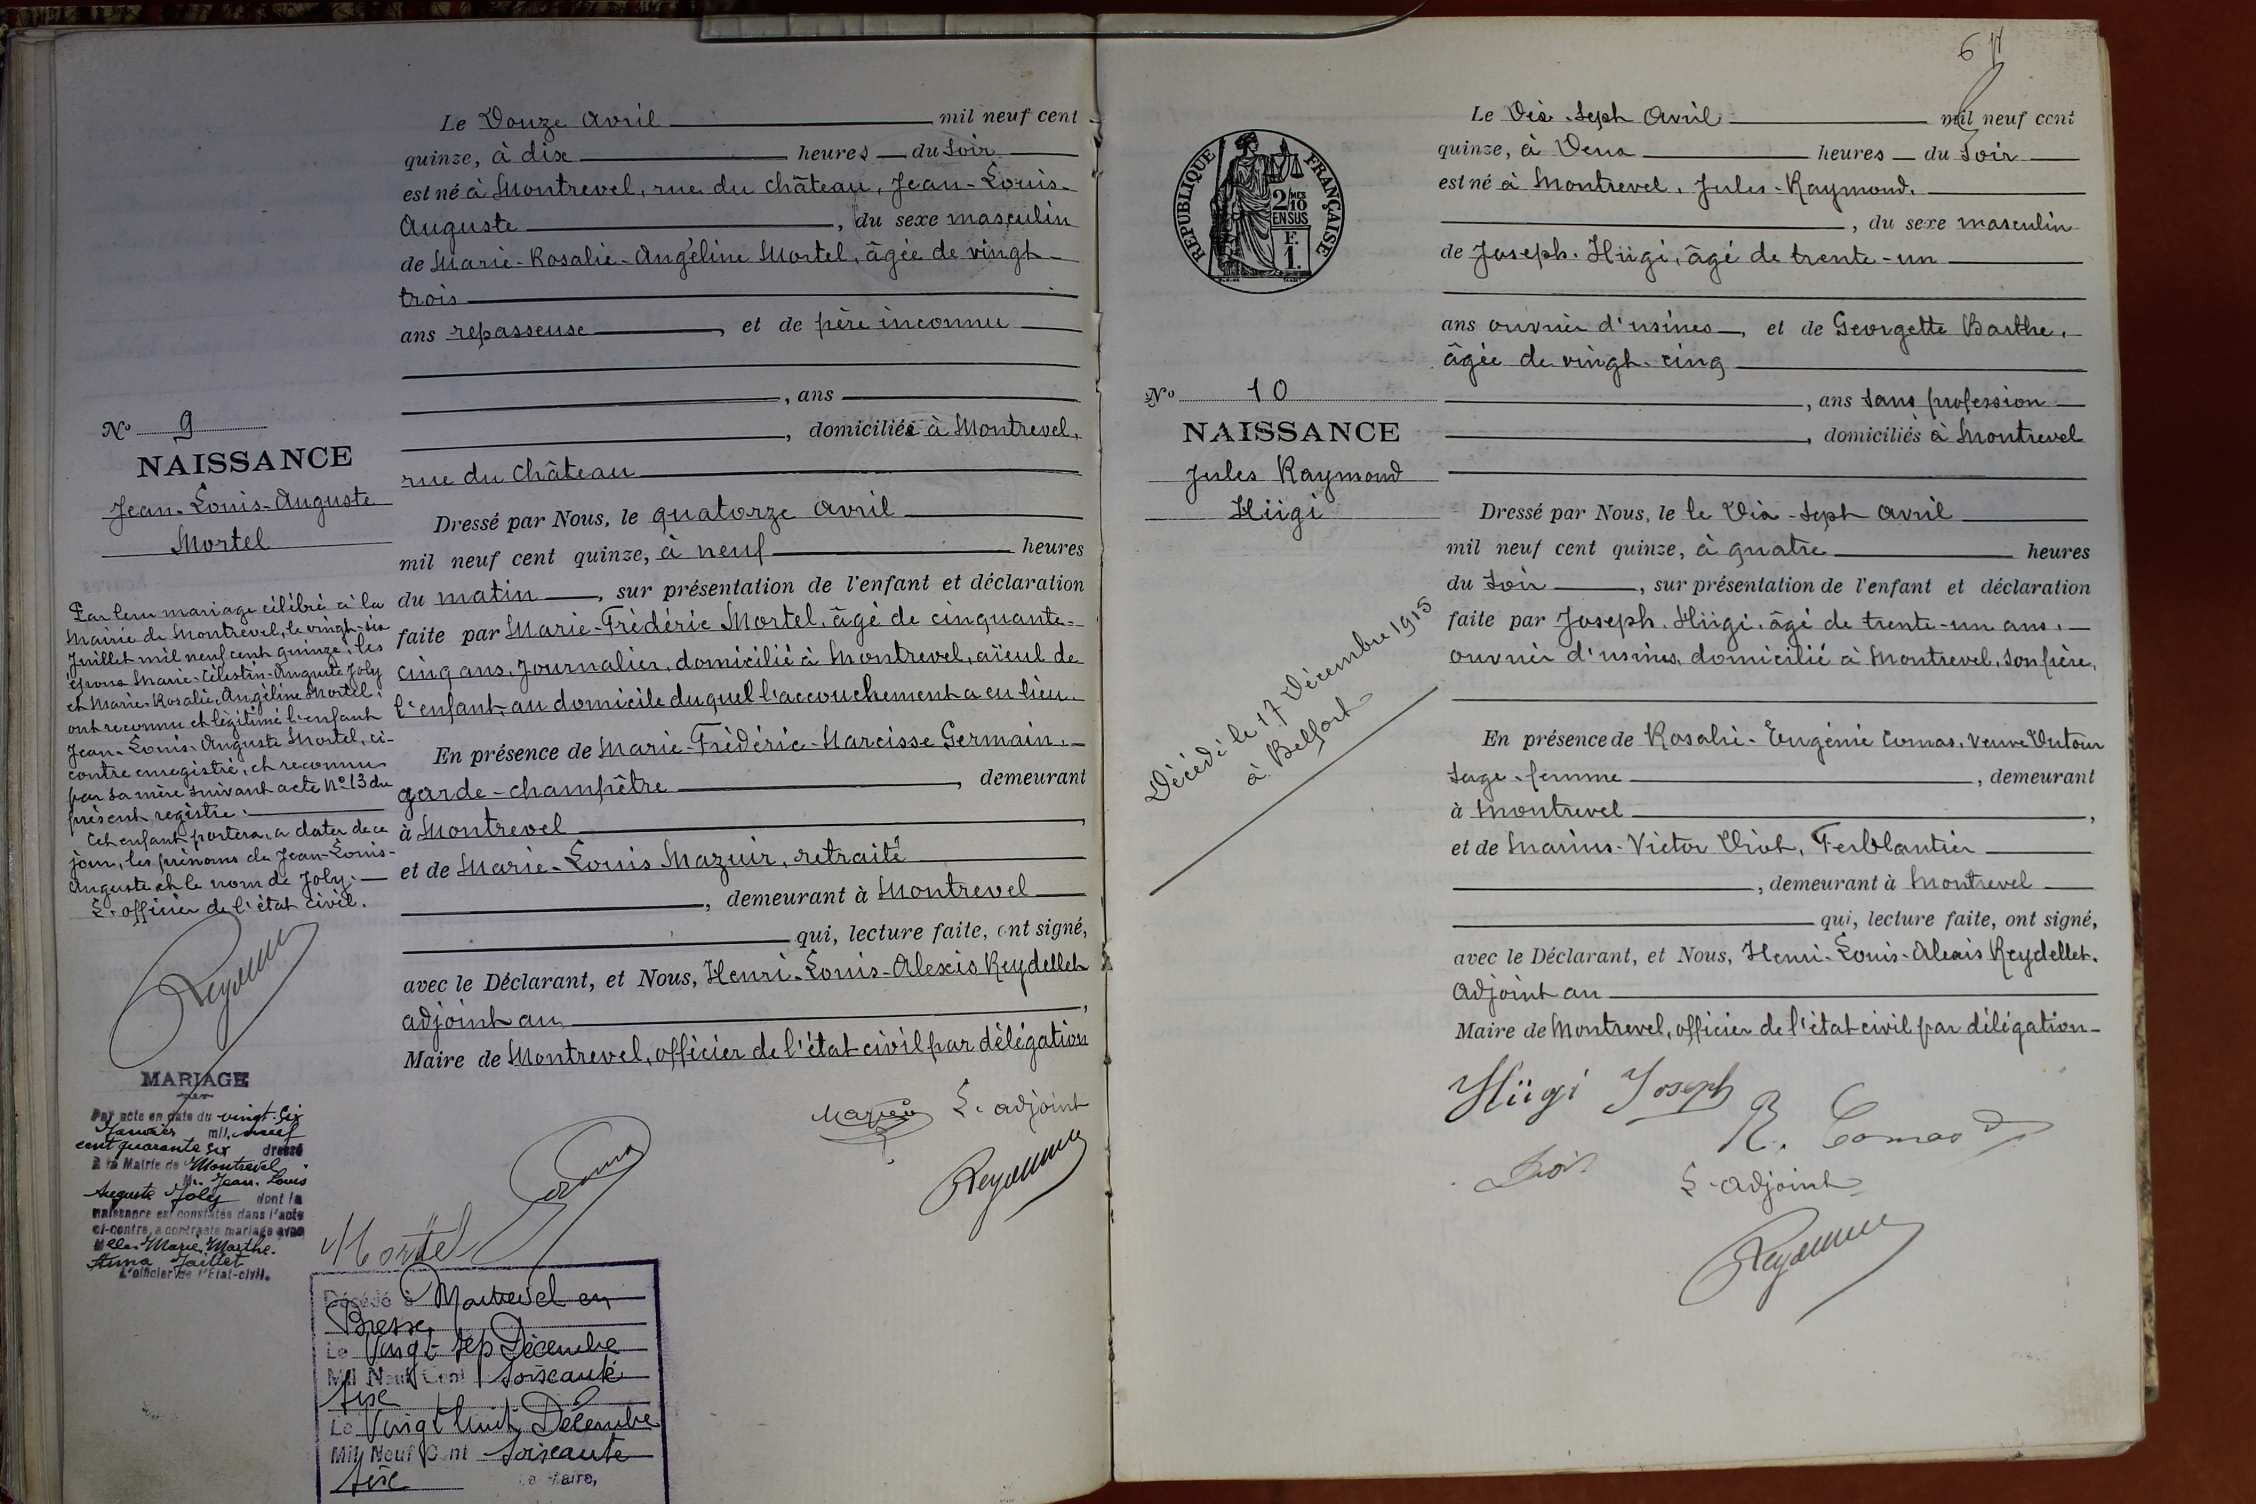 Le Douze Avril mil neuf cent
quinze, à dix heures du soir
est né à Montrevel, rue du Château, Jean-Louis-
Auguste, du sexe masculin
de Marie-Rosalie-Angéline Mortel, âgée de vingt
trois
ans repasseuse, et de père inconnu
, ans
, domiciliée à Montrevel,
rue du Château
Dressé par Nous, le quatorze Avril
mil neuf cent quinze, à neuf heures
du matin, sur présentation de l'enfant et déclaration
faite par Marie-Frédéric Mortel, âgé de cinquante-
cinq ans, journalier, domicilié à Montrevel, aïeul de
l'enfant, au domicile duquel l'accouchement a eu lieu.
En présence de Marie-Frédéric-Narcisse Germain,
garde-champêtre, demeurant
à Montrevel
et de Marie-Louis Mazuir, retraité
, demeurant à Montrevel
qui, lecture faite, ont signé,
avec le Déclarant, et Nous, Henri-Louis-Alexis Reydellet
adjoint au
Maire de Montrevel, officier de l'état civil par délégation
Mazuir L'adjoint
Mortel
No 9
NAISSANCE
Jean-Louis-Auguste
Mortel
Par leur mariage célébré à la
Mairie de Montrevel, le vingt-six
Juillet mil neuf cent quinze, les
époux Marie-Célestin-Auguste Joly
et Marie-Rosalie-Angéline Mortel,
ont reconnu et légitimé l'enfant
Jean-Louis-Auguste Mortel, ci-
contre enregistré, et reconnu
par sa mère suivant acte No 13 du
présent registre.
Cet enfant portera, à dater de ce
jour, les prénoms de Jean-Louis-
Auguste et le nom de Joly.
L'officier de l'état civil.
MARIAGE
Par acte en date du vingt-six
Janvier mil neuf
cent quarante six dressé
à la Mairie de Montrevel
M. Jean-Louis
Auguste Joly dont la
naissance est constatée dans l'acte
ci-contre, a contracté mariage avec
Melle Marie Marthe
Anna Jaillet
L'officier de l'Etat-civil.
Décédé à Montrevel en
Bresse
Le Vingt sep Décembre
Mil Neuf Cent soixante
sixe
Le Vingt huit Décembre
Mil Neuf Cent soixante
sixe
Le Maire,
67
RÉPUBLIQUE FRANÇAISE
2/10
EN SUS
F.
1.
Le Dix-Seph Avril mil neuf cent
quinze, à Deux heures du Soir
est né à Montrevel, Jules-Raymond,
, du sexe masculin
de Joseph Hügi, âgé de trente-un
ans ouvrier d'usines, et de Georgette Barthe,
âgée de vingt-cinq
, ans sans profession
, domiciliés à Montrevel
Dressé par Nous, le le Dix-Seph Avril
mil neuf cent quinze, à quatre heures
du Soir, sur présentation de l'enfant et déclaration
faite par Joseph Hügi, âgé de trente-un ans,
ouvrier d'usines, domicilié à Montrevel, son père,
En présence de Rosalie-Eugénie Comas, Veuve Dutour
Sage-femme, demeurant
à Montrevel,
et de Marius-Victor Diot, Ferblantier
, demeurant à Montrevel
qui, lecture faite, ont signé,
avec le Déclarant, et Nous, Henri-Louis-Alexis Reydellet,
Adjoint au
Maire de Montrevel, officier de l'état civil par délégation
Hügi Joseph
R. Comas
Diot L'adjoint
No 10
NAISSANCE
Jules Raymond
Hügi
Décédé le 17 Décembre 1915
à Belfort